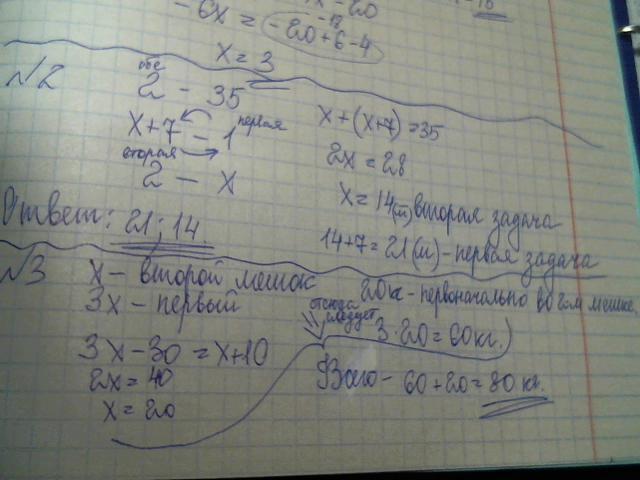 - 6x = - 20 + 6 - 4
- 18
x = 3
№2
обе
2 - 35
x + 7 - 1 первая
вторая
2 - x
Ответ: 21; 14.
x + (x+7) = 35
2x = 28
x = 14(ш) вторая задача
14+7 = 21(ш) - первая задача
№3
x - второй мешок
3x - первый
3x - 30 = x + 10
2x = 40
x = 20
20 кг - первоначально во 2ом мешке.
отсюда
следует
3 · 20 = 60 кг.)
Всего - 60 + 20 = 80 кг.